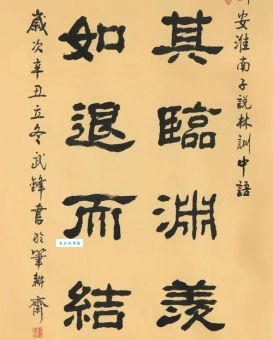 安淮南子說林訓中語
其臨淵羨
如退而結
歲次辛丑立冬武鋒書於筆耕齋